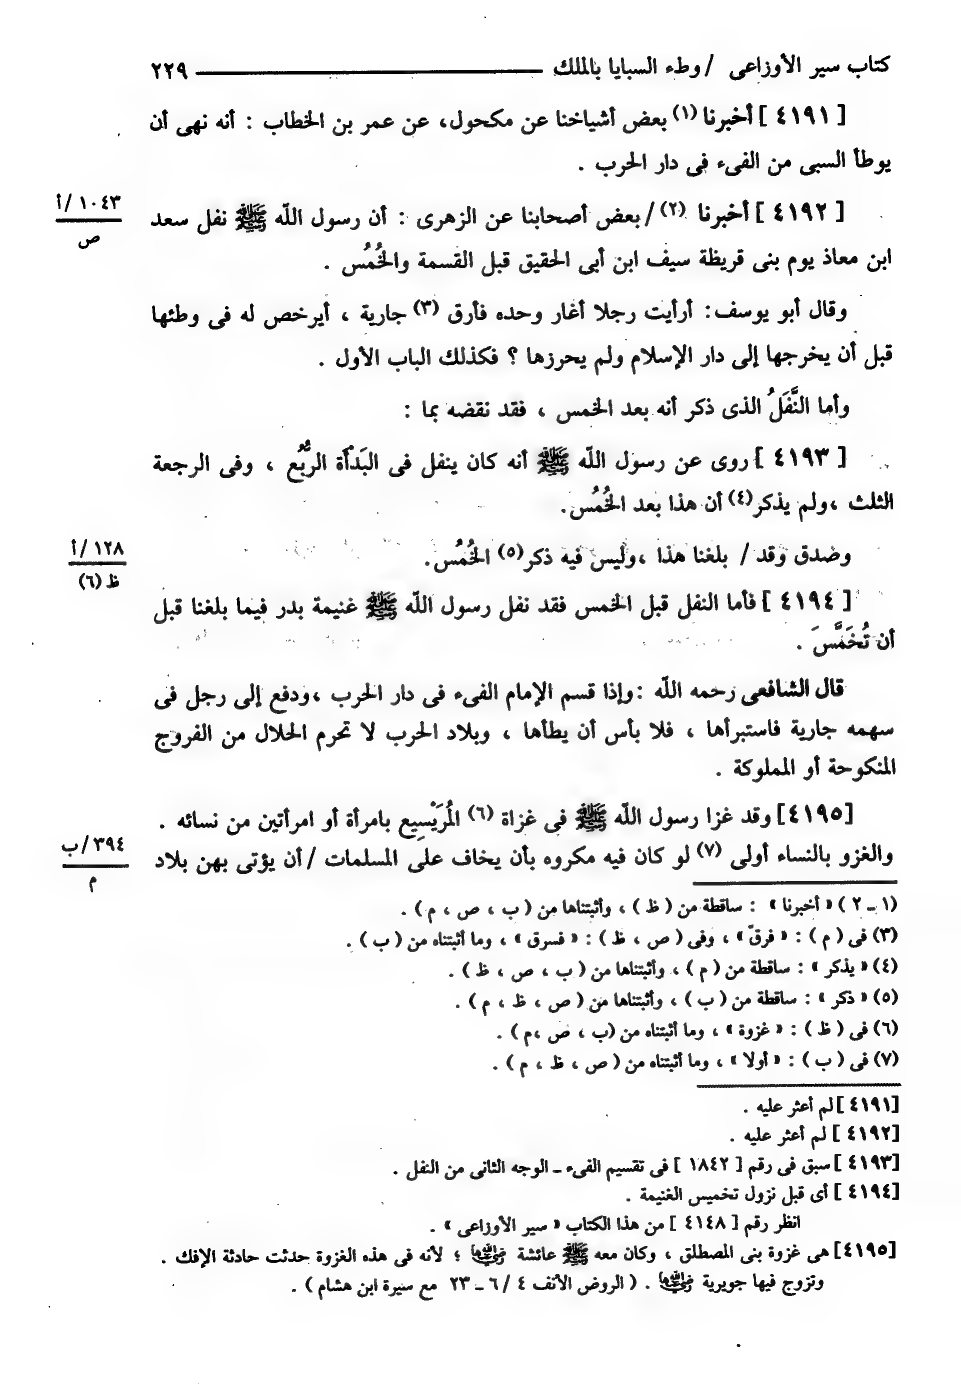 كتاب سير الأوزاعى / وطء السبايا بالملك ٢٢٩
[ ٤١٩١ ] أخبرنا (١) بعض أشياخنا عن مكحول، عن عمر بن الخطاب : أنه نهى أن
يوطأ السبى من الفىء فى دار الحرب .
[ ٤١٩٢ ] أخبرنا (٢) / بعض أصحابنا عن الزهرى : أن رسول الله ﷺ نفل سعد
١٠٤٣ / أ
ص
ابن معاذ يوم بنى قريظة سيف ابن أبى الحقيق قبل القسمة والخُمُس .
وقال أبو يوسف: أرأيت رجلا أغار وحده فأرق (٣) جارية ، أيرخص له فى وطئها
قبل أن يخرجها إلى دار الإسلام ولم يحرزها ؟ فكذلك الباب الأول .
وأما النَّفَلُ الذى ذكر أنه بعد الخمس ، فقد نقضه بما :
[ ٤١٩٣ ] روى عن رسول الله ﷺ أنه كان ينفل فى البَدْأة الرُّبُع ، وفى الرجعة
الثلث ،ولم يذكر (٤) أن هذا بعد الخُمُس.
وصدق وقد / بلغنا هذا ،وليس فيه ذكر (٥) الخُمُس.
١٢٨ / أ
ظ (٦)
[ ٤١٩٤ ] فأما النفل قبل الخمس فقد نفل رسول الله ﷺ غنيمة بدر فيما بلغنا قبل
أن تُخَمَّسَ .
قال الشافعى رحمه الله :وإذا قسم الإمام الفىء فى دار الحرب ،ودفع إلى رجل فى
سهمه جارية فاستبرأها ، فلا بأس أن يطأها ، وبلاد الحرب لا تحرم الحلال من الفروج
المنكوحة أو المملوكة .
[٤١٩٥] وقد غزا رسول الله ﷺ فى غزاة (٦) المُرَيْسِيع بامرأة أو امرأتين من نسائه .
والغزو بالنساء أولى (٧) لو كان فيه مكروه بأن يخاف على المسلمات / أن يؤتى بهن بلاد
٣٩٤ / ب
م
(١ ـ ٢ ) « أخبرنا » : ساقطة من ( ظ ) ، وأثبتناها من ( ب ، ص ، م ) .
(٣) فى ( م ) : « فرقّ » ، وفى ( ص ، ظ ) : « فسرق » ، وما أثبتناه من ( ب ) .
(٤) « يذكر » : ساقطة من ( م ) ، وأثبتناها من ( ب ، ص ، ظ ) .
(٥) « ذكر » : ساقطة من ( ب ) ، وأثبتناها من ( ص ، ظ ، م ) .
(٦) فى ( ظ ) : « غزوة » ، وما أثبتناه من (ب ، ص ،م ) .
(٧) فى ( ب ) : « أولا » ، وما أثبتناه من ( ص ، ظ ، م ) .
[٤١٩١ ] لم أعثر عليه .
[٤١٩٢ ] لم أعثر عليه .
[٤١٩٣ ] سبق فى رقم [ ١٨٤٢ ] فى تقسيم الفىء ـ الوجه الثانى من النفل .
[٤١٩٤ ] أى قبل نزول تخميس الغنيمة .
انظر رقم [ ٤١٤٨ ] من هذا الكتاب « سير الأوزاعى » .
[٤١٩٥] هى غزوة بنى المصطلق ، وكان معه ﷺ عائشة رضي الله عنها ؛ لأنه فى هذه الغزوة حدثت حادثة الإفك .
وتزوج فيها جويرية رضي الله عنها . ( الروض الأنف ٤ / ٦ ـ ٢٣ مع سيرة ابن هشام ) .